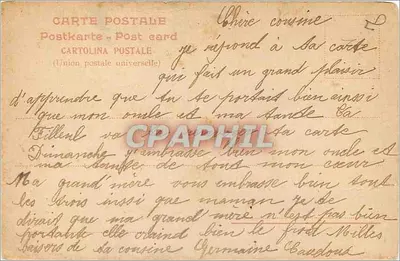 CARTE POSTALE
Postkarte - Post card
CARTOLINA POSTALE
(Union postale universelle)
Chire cousine
je répond à ta carte
qui fait un grand plaisir
d'apprendre que tu te portait bien ainsi
que mon oncle et ma tante ta
Filleul va ta carte
CPAPHIL
Dimanche j'embrasse bien mon oncle et
ma de tout mon cœur
Ma grand'mère vous embrasse bien tout
les trois aussi que maman je te
dirait que ma grand'mère n'est pas bien
portante elle craind bien le froid Milles
baisers de ta cousine Germaine